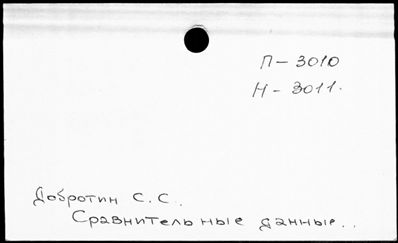 П-3010
Н-3011.
Добротин С.С.
Сравнительные данные..